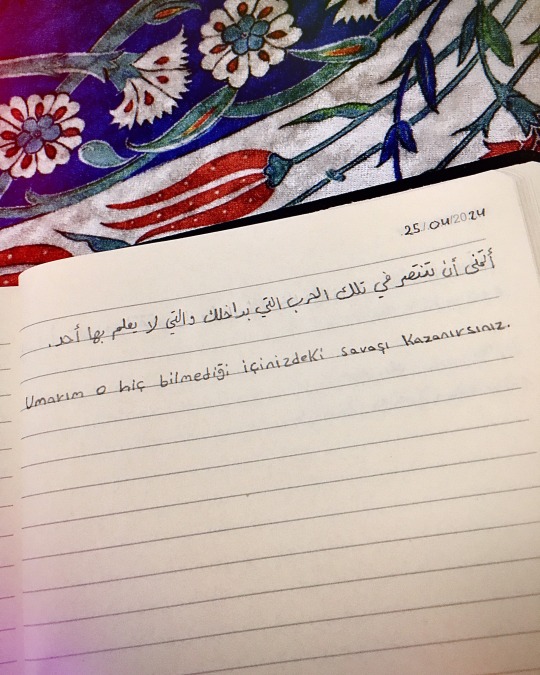 25/04/2024
أتمنى أن تنتصر في تلك الحرب التي بداخلك والتي لا يعلم بها أحد.
Umarım o hiç bilmediği içinizdeki savaşı kazanırsınız.